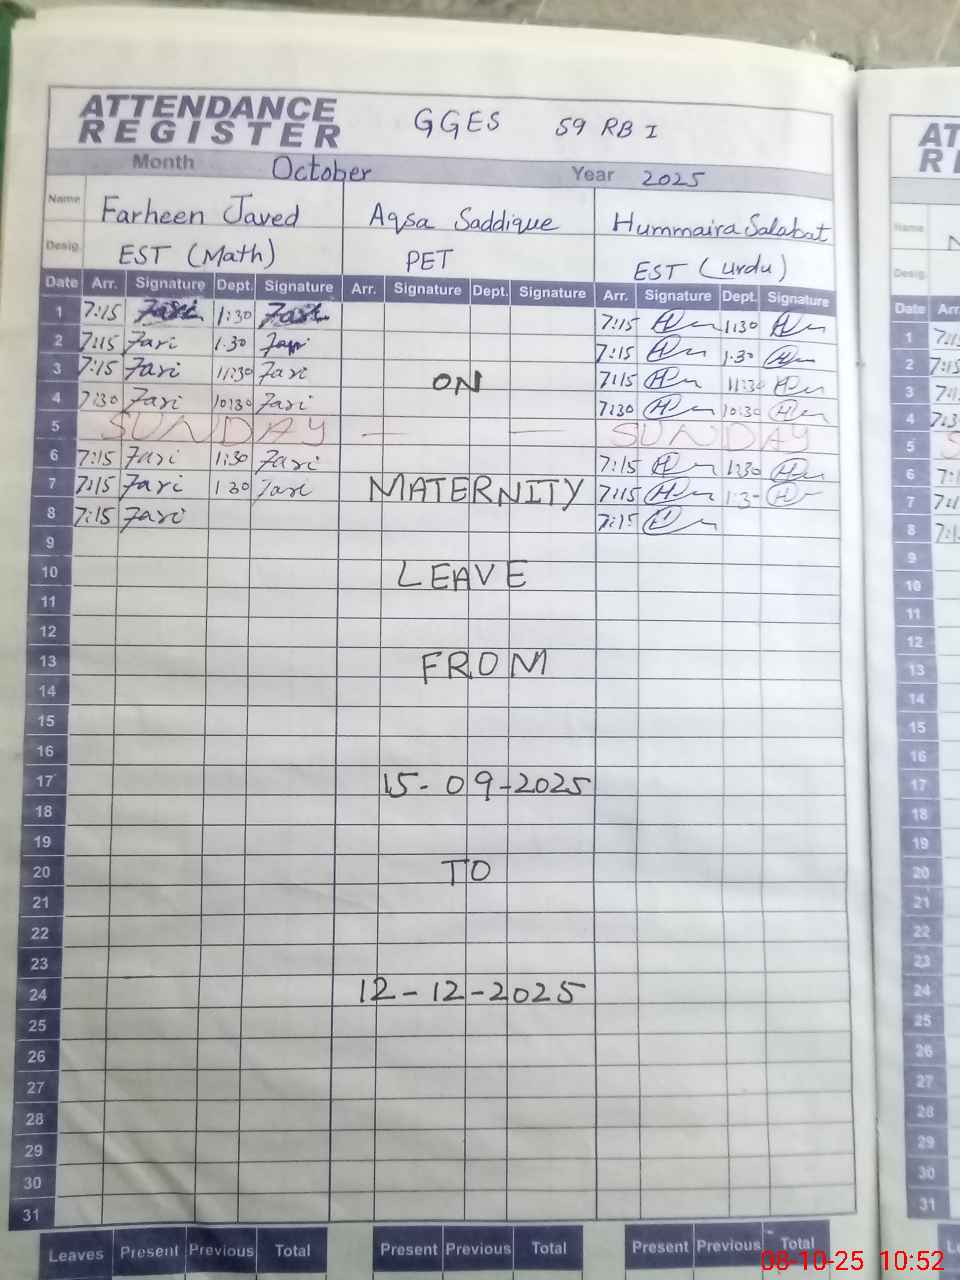 ATTENDANCE
REGISTER
GGES 59 RB I
Month October Year 2025
Name Farheen Javed Aqsa Saddique Hummaira Salabat
Desig. EST (Math) PET EST (Urdu)
Date Arr. Signature Dept. Signature Arr. Signature Dept. Signature Arr. Signature Dept. Signature
1 7:15 Fari 1:30 Fari 7:15 1:30
2 7:15 Fari 1:30 Fari 7:15 1:30
3 7:15 Fari 11:30 Fari ON 7:15 11:30
4 7:30 Fari 10:30 Fari 7:30 10:30
5 SUNDAY — — SUNDAY
6 7:15 Fari 1:30 Fari 7:15 1:30
7 7:15 Fari 1:30 Fari MATERNITY 7:15 1:3
8 7:15 Fari 7:15
9
10 LEAVE
11
12
13 FROM
14
15
16
17 15-09-2025
18
19
20 TO
21
22
23
24 12-12-2025
25
26
27
28
29
30
31
Leaves Present Previous Total Present Previous Total Present Previous Total
AT
RE
Name
Desig.
Date Arr
1 7:15
2 7:15
3
4 7:3
5
6
7
8
9
10
11
12
13
14
15
16
17
18
19
20
21
22
23
24
25
26
27
28
29
30
31
08-10-25 10:52